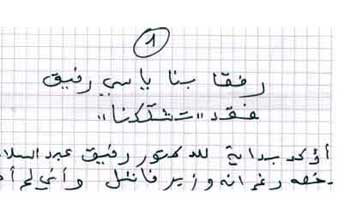 1
رفقا بنا يا سي رفيق
فقد "تشككنا"
أؤكد بداية للدكتور رفيق عبد السلا
رغم انه وزير فاشل وأني لم أ